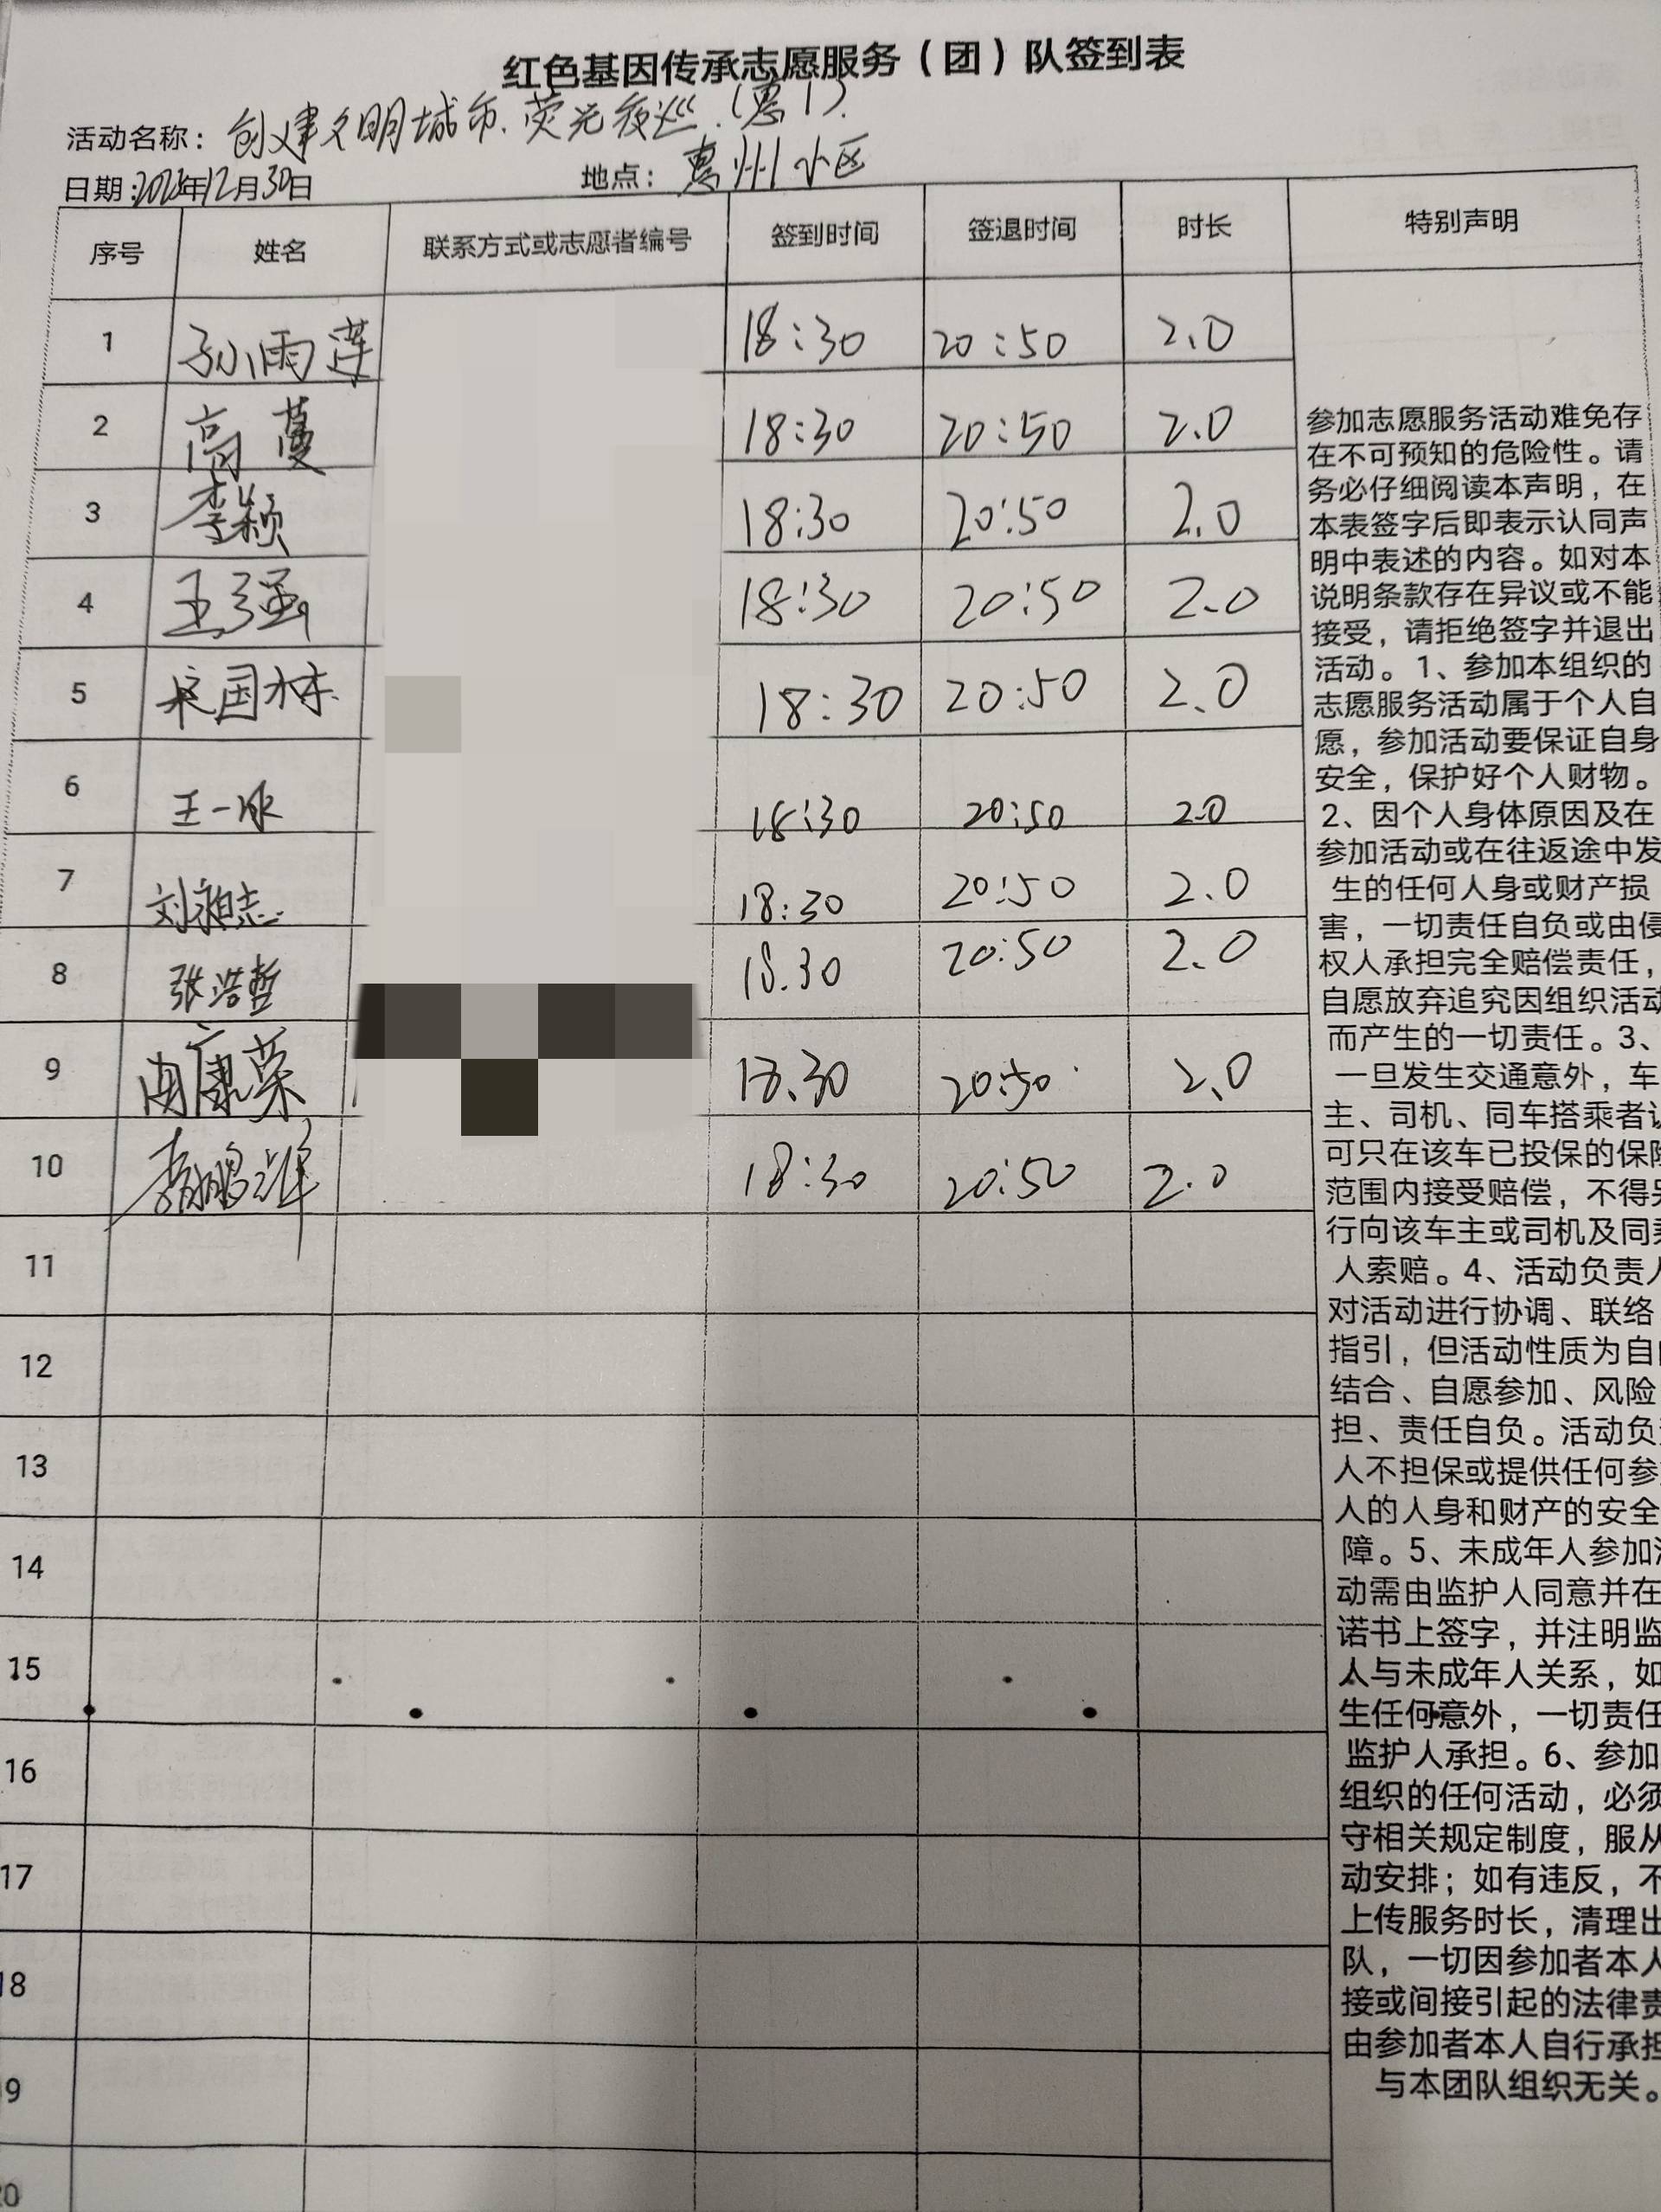 红色基因传承志愿服务（团）队签到表
活动名称：创建文明城市.荧光夜巡.（惠1）.
日期：年12月30日 地点：惠州小区
序号 姓名 联系方式或志愿者编号 签到时间 签退时间 时长 特别声明
1 孙雨莲 18:30 20:50 2.0
2 高蔓 18:30 20:50 2.0
3 李颖 18:30 20:50 2.0
4 王强 18:30 20:50 2.0
5 国栋 18:30 20:50 2.0
6 王一冰 18:30 20:50 2.0
7 刘志 18:30 20:50 2.0
8 张浩哲 18.30 20:50 2.0
9 康荣 18.30 20:50 2.0
10 鹏 18:30 20:50 2.0
11
12
13
14
15
16
17
18
9
20
参加志愿服务活动难免存
在不可预知的危险性。请
务必仔细阅读本声明，在
本表签字后即表示认同声
明中表述的内容。如对本
说明条款存在异议或不能
接受，请拒绝签字并退出
活动。1、参加本组织的
志愿服务活动属于个人自
愿，参加活动要保证自身
安全，保护好个人财物。
2、因个人身体原因及在
参加活动或在往返途中发
生的任何人身或财产损
害，一切责任自负或由侵
权人承担完全赔偿责任，
自愿放弃追究因组织活动
而产生的一切责任。3、
一旦发生交通意外，车
主、司机、同车搭乘者
可只在该车已投保的保险
范围内接受赔偿，不得另
行向该车主或司机及同乘
人索赔。4、活动负责人
对活动进行协调、联络
指引，但活动性质为自由
结合、自愿参加、风险
担、责任自负。活动负责
人不担保或提供任何参
人的人身和财产的安全
障。5、未成年人参加活
动需由监护人同意并在
诺书上签字，并注明监
人与未成年人关系，如
生任何意外，一切责任
监护人承担。6、参加
组织的任何活动，必须
守相关规定制度，服从
动安排；如有违反，不
上传服务时长，清理出
队，一切因参加者本人
接或间接引起的法律责
由参加者本人自行承担
与本团队组织无关。